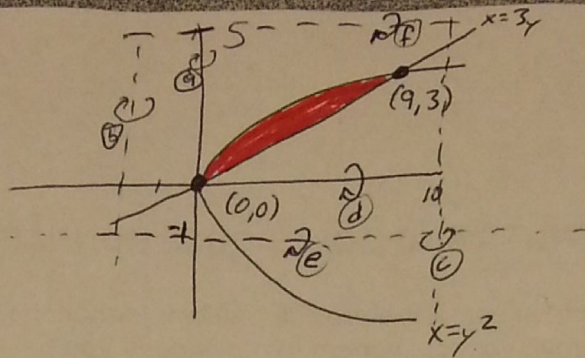 5
f
x=3y
a
b
(9,3)
(0,0)
10
d
-1
e
c
x=y²